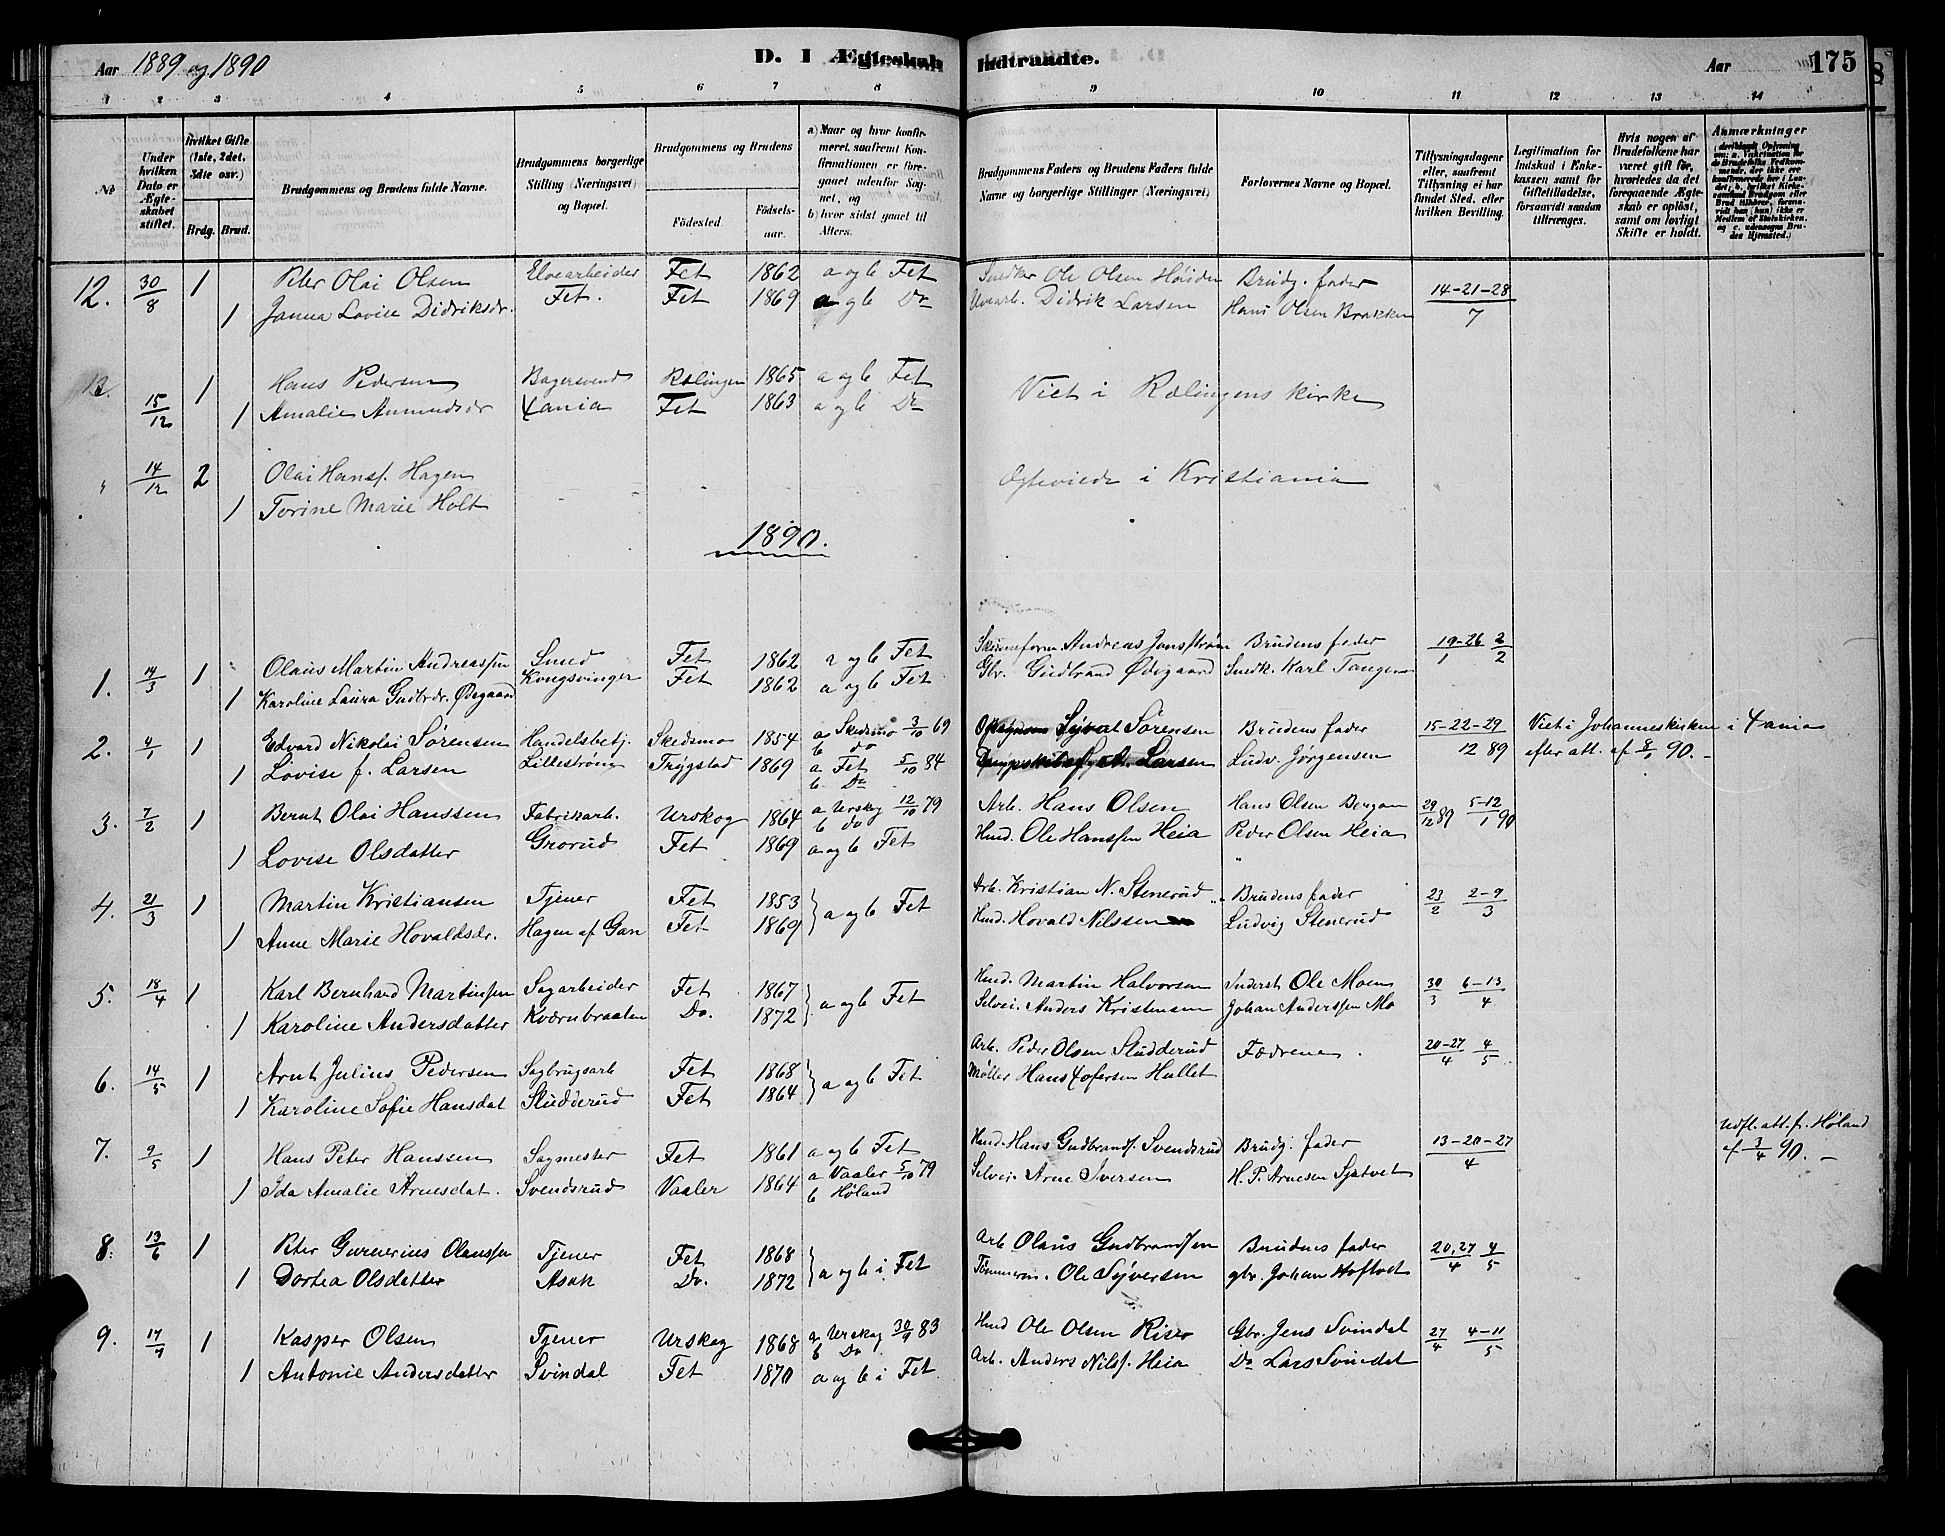 Aar 1889 og 1890
D. I Ægteskab Indtraadte.
Aar 175
1 2 3 4 5 6 7 8 9 10 11 12 13 14
№
Under hvilken Dato er Ægteskabet stiftet.
Hvilket Gifte (1ste, 2det, 3die osv.)
Brdg. Brud.
Brudgommens og Brudens fulde Navne.
Brudgommens borgerlige Stilling (Næringsvei) og Bopæl.
Brudgommens og Brudens
Födested. Födselsaar.
a) Naar og hvor konfirmeret, saafremt Konfirmationen er foregaaet udenfor Sognet, og
b) hvor sidst gaaet til Alters.
Brudgommens Faders og Brudens Faders fulde Navne og borgerlige Stillinger (Næringsvei)
Forlovernes Navne og Bopæl.
Tillysningsdagene eller, saafremt Tillysning ei har fundet Sted, efter hvilken Bevilling.
Legitimation for Indskud i Enkekassen samt for Giftetilladelse, forsaavidt saadan tiltrænges.
Hvis nogen af Brudefolkene har været gift før, hvorledes da det foregaaende Ægteskab er opløst, samt om lovligt Skifte er holdt.
Anmærkninger
12. 30/8 1 Peter Olai Olsen Elvearbeider Fet 1862 a og b Fet Snedker Ole Olsen Høiden Brudg. fader 14-21-28/7
1 Janna Lovise Didriksdr. Fet. Fet 1869 a og b Do Didrik Larsen Hans Olsen Brakken
15/12 1 Hans Pedersen Bagersvend Rælingen 1865 a og b Fet Viet i Rælingens kirke
1 Amalie Amundsdr Xania Fet 1863 a og b Do
" 14/12 2 Olai Hansf. Hagen Ægteviede i Kristiania
1 Torine Marie Holt
1890.
1. 14/3 1 Olaus Martin Andreassen Smed Fet 1862 a og b Fet Andreas Jansstrøm Brudens fader 19-26/1 2/2
1 Karoline Laura Gudbrdr. Ødegaard Kongsvinger Fet 1862 a og b Fet Gbr. Gudbrand Ødegaard Snedk. Karl Tangen
2. 4/1 1 Edvard Nikolai Sørensen Handelsbetj. Skedsmo 1854 a Skedsmo 3/10 69 b do Sørensen Brudens fader 15-22-29/12 89 Viet i Johanneskirken i Xania
1 Lovise f. Larsen Lillestrøm Trygstad 1869 a Fet 5/10 84 b Do Larsen Ludv. Jørgensen efter att. af 8/1 90. -
3. 7/2 1 Bernt Olai Hanssen Fabrikarb. Urskog 1864 a Urskog 12/10 79 b do Arb. Hans Olsen Hans Olsen Bergan 29/12 89 5-12/1 90
1 Lovise Olsdatter Grorud Fet 1869 a og b Fet Hmd. Ole Hanssen Heia Peder Olsen Heia
4. 21/3 1 Martin Kristiansen Tjener Fet 1853 a og b Fet Arb. Kristian N. Stenerud Brudens fader 23/2 2-9/3
1 Anne Marie Hovaldsdr. Hagen af Gan Fet 1869 Hmd. Hovald Nilssen Ludvig Stenerud
5. 18/4 1 Karl Bernhard Martinsen Sagarbeider Fet 1867 a og b Fet Hmd. Martin Halvorsen Inderst Ole Moen 30/3 6-13/4
1 Karoline Andersdatter Kværnbraaten Do. 1872 Selvei. Anders Kristensen Johan Anderssen Mo
6. 14/5 1 Arnt Julius Pedersen Sagbrugsarb Fet 1868 a og b Fet Arb. Peder Olsen Studderud Fædrene. 20-27/4 4/5
1 Karoline Sofie Hansdat Studderud Fet 1864 Møller Hans Xofersen Hullet
7. 9/5 1 Hans Peter Hanssen Sagmester Fet 1861 a og b Fet Hmd. Hans Gudbrandf. Svendsrud Brudg. fader 13-20-27/4 Udfl. att. f. Høland
1 Ida Amalie Arnesdat. Svendsrud Vaaler 1864 a Vaaler 5/10 79 b Høland Selvei. Arne Iversen H. P. Arnesen Sjatvet af 3/4 90. -
8. 13/6 1 Peter Gunerius Olaussen Tjener Fet 1868 a og b i Fet Arb Olaus Gudbrandsen Brudens fader 20,27/4 4/5
1 Dortea Olsdatter Asak Do. 1872 Tømmerm. Ole Syversen gbr. Johan Hoftvet
9. 1 Kasper Olsen Tjener Urskog 1868 a Urskog 30/9 83 b Do Hmd Ole Olsen Riser Gbr. Jens Svindal 27/4 4-11/5
1 Antonie Andersdatter Svindal Fet 1870 a og b i Fet Arb. Anders Nilsf. Heia Do Lars Svindal